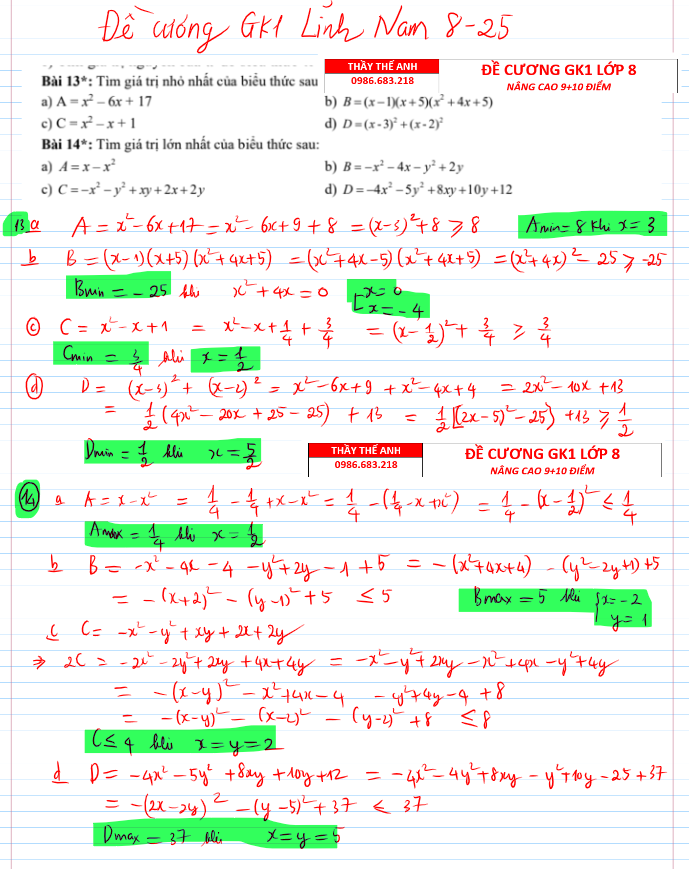 Đề cương GK1 Lĩnh Nam 8-25
THẦY THẾ ANH
0986.683.218
ĐỀ CƯƠNG GK1 LỚP 8
NÂNG CAO 9+10 ĐIỂM
Bài 13*: Tìm giá trị nhỏ nhất của biểu thức sau
a) A = x² – 6x + 17
b) B = (x – 1)(x + 5)(x² + 4x + 5)
c) C = x² – x + 1
d) D = (x - 3)² + (x - 2)²
Bài 14*: Tìm giá trị lớn nhất của biểu thức sau:
a) A = x – x²
b) B = –x² – 4x – y² + 2y
c) C = –x² – y² + xy + 2x + 2y
d) D = –4x² – 5y² + 8xy + 10y + 12
13 a A = x² - 6x + 17 = x² - 6x + 9 + 8 = (x-3)² + 8 ⩾ 8 Amin = 8 khi x = 3
b B = (x-1)(x+5)(x² + 4x + 5) = (x² + 4x - 5)(x² + 4x + 5) = (x² + 4x)² - 25 ⩾ -25
Bmin = -25 khi x² + 4x = 0 [x = 0
x = -4
c C = x² - x + 1 = x² - x + 1/4 + 3/4 = (x - 1/2)² + 3/4 ⩾ 3/4
Cmin = 3/4 khi x = 1/2
d D = (x-3)² + (x-2)² = x² - 6x + 9 + x² - 4x + 4 = 2x² - 10x + 13
= 1/2 (4x² - 20x + 25 - 25) + 13 = 1/2 [(2x-5)² - 25] + 13 ⩾ 1/2
Dmin = 1/2 khi x = 5/2
THẦY THẾ ANH
0986.683.218
ĐỀ CƯƠNG GK1 LỚP 8
NÂNG CAO 9+10 ĐIỂM
14 a A = x - x² = 1/4 - 1/4 + x - x² = 1/4 - (1/4 - x + x²) = 1/4 - (x - 1/2)² ⩽ 1/4
Amax = 1/4 khi x = 1/2
b B = -x² - 4x - 4 - y² + 2y - 1 + 5 = -(x² + 4x + 4) - (y² - 2y + 1) + 5
= -(x+2)² - (y-1)² + 5 ⩽ 5 Bmax = 5 khi {x = -2
y = 1
c C = -x² - y² + xy + 2x + 2y
⇒ 2C = -2x² - 2y² + 2xy + 4x + 4y = -x² - y² + 2xy - x² + 4x - y² + 4y
= -(x-y)² - x² + 4x - 4 - y² + 4y - 4 + 8
= -(x-y)² - (x-2)² - (y-2)² + 8 ⩽ 8
C ⩽ 4 khi x = y = 2
d D = -4x² - 5y² + 8xy + 10y + 12 = -4x² - 4y² + 8xy - y² + 10y - 25 + 37
= -(2x - 2y)² - (y-5)² + 37 ⩽ 37
Dmax = 37 khi x = y = 5